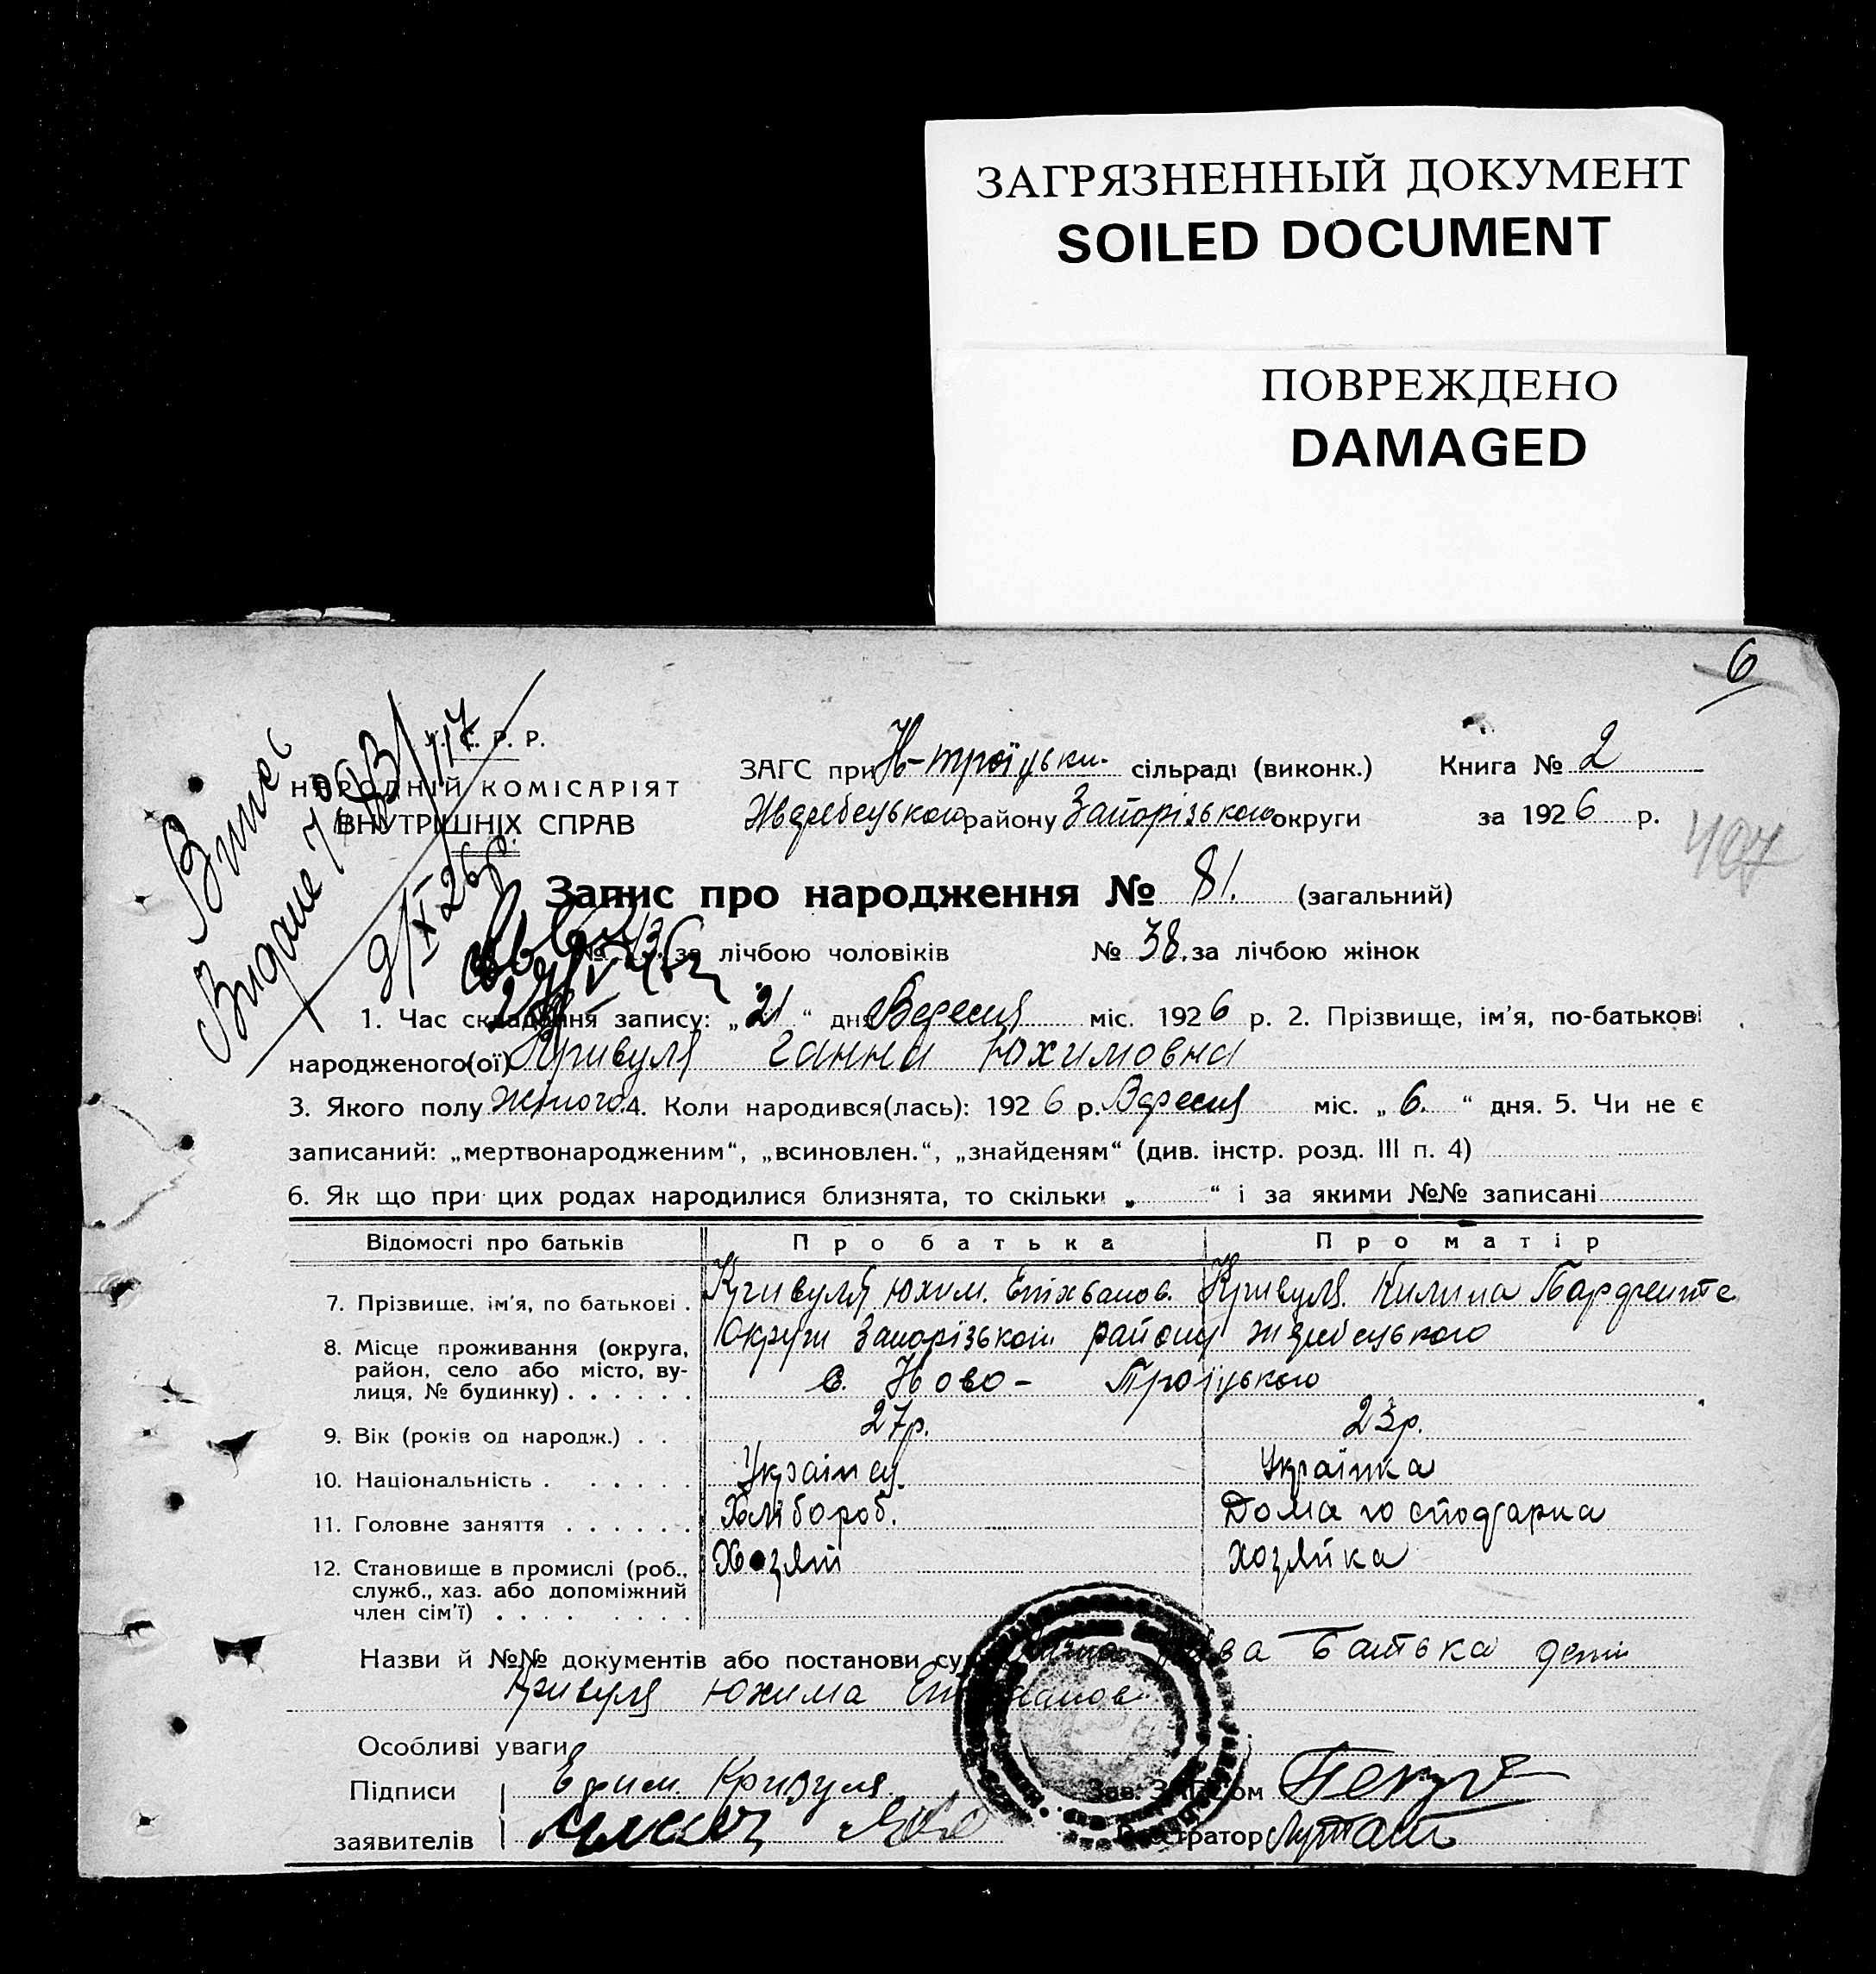 ЗАГРЯЗНЕННЫЙ ДОКУМЕНТ
SOILED DOCUMENT
ПОВРЕЖДЕНО
DAMAGED
6
Р. Р.
НАРОДНІЙ КОМІСАРІЯТ
ВНУТРІШНІХ СПРАВ
ЗАГС при Н-троїцьки. сільраді (виконк.) Книга № 2
Жеребецького району Запорізького округи за 1926 р.
407
Запис про народження № 81. (загальний)
№ 43. за лічбою чоловіків № 38. за лічбою жінок
1. Час складання запису: „21“ дня Вересня міс. 1926 р. 2. Прізвище, ім'я, по-батькові
народженого(ої) Кривуля Ганна Юхимовна
3. Якого полу Жіночого 4. Коли народився(лась): 1926 р. Вересня міс. „6.“ дня. 5. Чи не є
записаний: „мертвонародженим“, „всиновлен.“, „знайденям“ (див. інстр. розд. III п. 4)
6. Як що при цих родах народилися близнята, то скільки „ “ і за якими №№ записані
Відомості про батьків Про батька Про матір
7. Прізвище, ім'я, по батькові . Кривуля Юхим. Кривуля. Килина
8. Місце проживання (округа, район, село або місто, ву-
лиця, № будинку) . . . . . .
Округи Запорізькой району Жеребецького
с. Ново- Троїцького
9. Вік (років од народж.) . . 27р. 23р.
10. Національність . . . . . . Українец. Українка
11. Головне заняття . . . . . . Хлібороб. Дома господарка
12. Становище в промислі (роб., Хозяін Хозяйка
служб., хаз. або допоміжний
член сім'ї) . . . . . . . .
Назви й №№ документів або постанови батька
Кривуля Юхима
Особливі уваги
Підписи Ефим. Кривуля. Зав. ЗАГСом
заявителів Реєстратор
Витяг
Видане